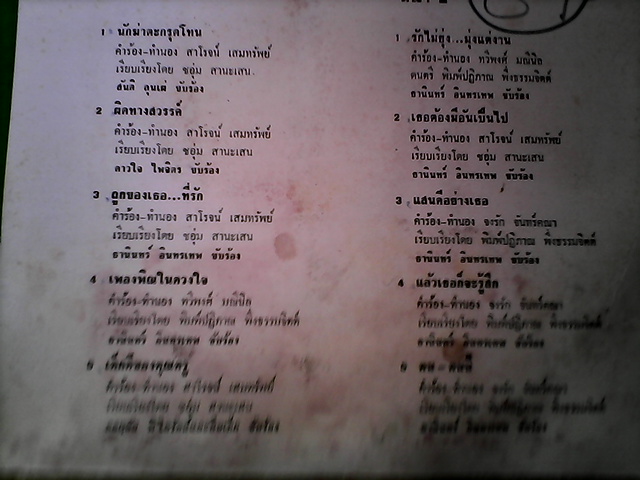 1 นักฆ่าตะกรุดโทน
คำร้อง-ทำนอง สาโรจน์ เสมทรัพย์
เรียบเรียงโดย ชอุ่ม สานะเสน
สันติ ลุนเผ่ ขับร้อง
2 ผิดทางสวรรค์
คำร้อง-ทำนอง สาโรจน์ เสมทรัพย์
เรียบเรียงโดย ชอุ่ม สานะเสน
ดาวใจ ไพจิตร ขับร้อง
3 ลูกของเธอ...ที่รัก
คำร้อง-ทำนอง สาโรจน์ เสมทรัพย์
เรียบเรียงโดย ชอุ่ม สานะเสน
ธานินทร์ อินทรเทพ ขับร้อง
4 เพลงพิณในดวงใจ
คำร้อง-ทำนอง ทวีพงศ์ มณีนิล
เรียบเรียงโดย พิมพ์ปฏิภาณ พึ่งธรรมจิตต์
ธานินทร์ อินทรเทพ ขับร้อง
5
คำร้อง-ทำนอง สาโรจน์ เสมทรัพย์
เรียบเรียงโดย ชอุ่ม สานะเสน
ขับร้อง
1 รักไม่ยุ่ง...มุ่งแต่งาน
คำร้อง-ทำนอง ทวีพงศ์ มณีนิล
ดนตรี พิมพ์ปฏิภาณ พึ่งธรรมจิตต์
ธานินทร์ อินทรเทพ ขับร้อง
2 เธอต้องมีอันเป็นไป
คำร้อง-ทำนอง สาโรจน์ เสมทรัพย์
เรียบเรียงโดย ชอุ่ม สานะเสน
ธานินทร์ อินทรเทพ ขับร้อง
3 แสนดีอย่างเธอ
คำร้อง-ทำนอง จงรัก จันทร์คณา
เรียบเรียงโดย พิมพ์ปฏิภาณ พึ่งธรรมจิตต์
ธานินทร์ อินทรเทพ ขับร้อง
4 แล้วเธอก็จะรู้สึก
คำร้อง-ทำนอง จงรัก จันทร์คณา
เรียบเรียงโดย พิมพ์ปฏิภาณ พึ่งธรรมจิตต์
ธานินทร์ อินทรเทพ ขับร้อง
5
คำร้อง-ทำนอง จงรัก จันทร์คณา
เรียบเรียงโดย พิมพ์ปฏิภาณ พึ่งธรรมจิตต์
ธานินทร์ อินทรเทพ ขับร้อง